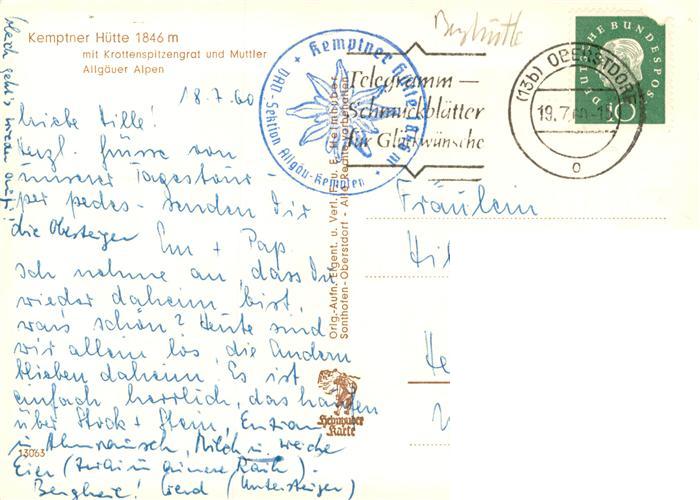 Kemptner Hütte 1846 m
mit Krottenspitzengrat und Muttler
Allgäuer Alpen
18.7.60
Liebe Lille!
Herzl. Grüsse von
unserer Tagestour -
per pedes - senden Dir
die Obersteiger Em + Pap.
Ich nehme an, dass Du
wieder daheim bist,
wars schön? Heute sind
wir allein los, die Andern
blieben daheim. Es ist
einfach herrlich, das
über Stock + Stein, Enzian
u. Almrausch, Milch u. weiche
Eier
Bergheil! (Untersteiger)
13063
Berghütte
Kemptner Hütte 1846 m
DAV-Sektion Allgäu-Kempten
Telegramm —
Schmuckblätter
für Glückwünsche
(13b) OBERSTDORF
19.7.60
DEUTSCHE BUNDESPOST
10
Fräulein
Orig.-Aufn., Eigent. u. Verl.
Sonthofen-Oberstdorf - Alle Rechte vorbehalten
Heimhuber
Karte